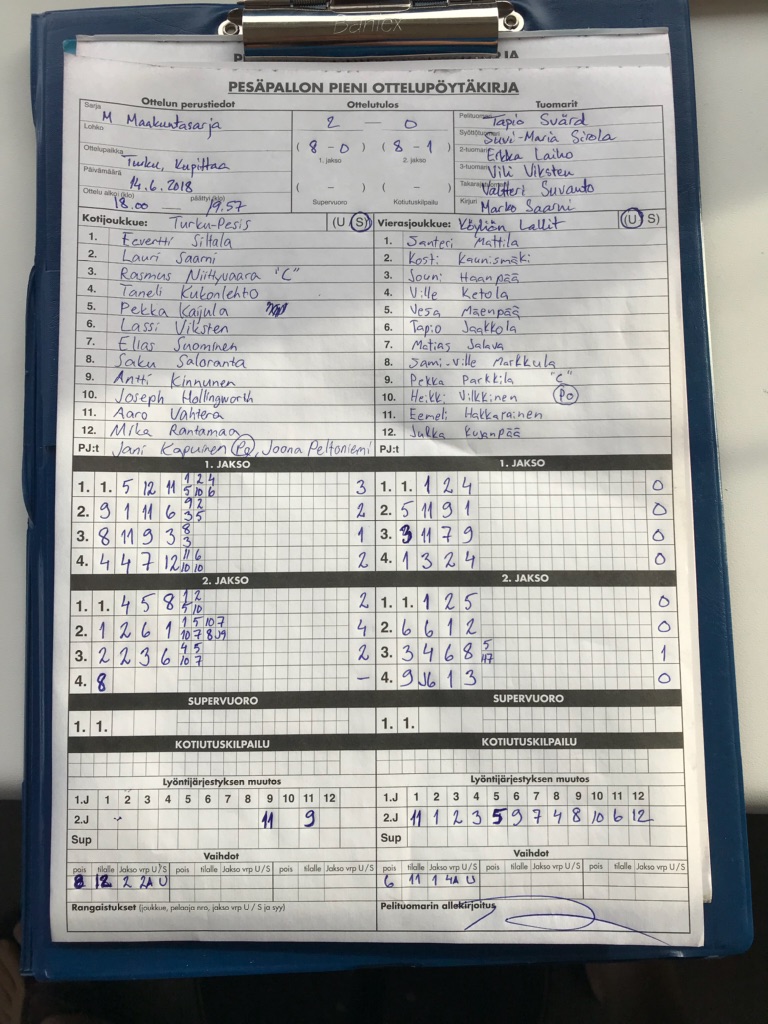 Bantex
PESÄPALLON PIENI OTTELUPÖYTÄKIRJA
Ottelun perustiedot Ottelutulos Tuomarit
Sarja M Maakuntasarja 2 – 0 Pelituomari Tapio Svärd
Lohko Syöttötuomari Suvi-Maria Sirola
( 8 - 0 ) ( 8 - 1 )
Ottelupaikka Turku, Kupittaa 1. jakso 2. jakso 2-tuomari Erkka Laiho
Päivämäärä 14.6.2018 3-tuomari Vili Viksten
( – ) ( – ) Takarajatuomari Valtteri Suvanto
Ottelu alkoi (klo) 18.00 päättyi (klo) 19.57 Supervuoro Kotiutuskilpailu Kirjuri Marko Saarni
Kotijoukkue: Turku-Pesis (U S) Vierasjoukkue: Köyliön Lallit (U S)
1. Eevertti Siltala 1. Santeri Mattila
2. Lauri Saarni 2. Kosti Kaunismäki
3. Rasmus Niittyvaara "C" 3. Jouni Haanpää
4. Taneli Kukonlehto 4. Ville Ketola
5. Pekka Kaijula 5. Vesa Mäenpää
6. Lassi Viksten 6. Tapio Jaakkola
7. Elias Suominen 7. Matias Salava
8. Saku Saloranta 8. Sami-Ville Markkula
9. Antti Kinnunen 9. Pekka Parkkila "C"
10. Joseph Hollingworth 10. Heikki Vilkkinen Po
11. Aaro Vahtera 11. Eemeli Hakkarainen
12. Mika Rantamaa 12. Jukka Kujanpää
PJ:t Jani Kapuinen Po, Joona Peltoniemi PJ:t
1. JAKSO 1. JAKSO
1. 1. 5 12 11 1 2 4 5 10 6 3 1. 1. 1 2 4 0
2. 9 1 11 6 9 2 3 5 2 2. 5 11 9 1 0
3. 8 11 9 3 8 3 1 3. 3 11 7 9 0
4. 4 4 7 12 11 6 10 10 2 4. 1 3 2 4 0
2. JAKSO 2. JAKSO
1. 1. 4 5 8 1 2 5 10 2 1. 1. 1 2 5 0
2. 1 2 6 1 1 5 10 7 10 7 8 J9 4 2. 6 6 1 2 0
3. 2 2 3 6 4 5 10 7 2 3. 3 4 6 8 5 1
4. 8 – 4. 9 J6 1 3 0
SUPERVUORO SUPERVUORO
1. 1. 1. 1.
KOTIUTUSKILPAILU KOTIUTUSKILPAILU
Lyöntijärjestyksen muutos Lyöntijärjestyksen muutos
1.J 1 2 3 4 5 6 7 8 9 10 11 12 1.J 1 2 3 4 5 6 7 8 9 10 11 12
2.J 11 9 2.J 11 1 2 3 5 9 7 4 8 10 6 12
Sup Sup
Vaihdot Vaihdot
pois tilalle Jakso vrp U/S pois tilalle Jakso vrp U/S pois tilalle Jakso vrp U/S pois tilalle Jakso vrp U/S pois tilalle Jakso vrp U/S pois tilalle Jakso vrp U/S
8 12 2 2A U 6 11 1 4A U
Rangaistukset (joukkue, pelaaja nro, jakso vrp U / S ja syy) Pelituomarin allekirjoitus